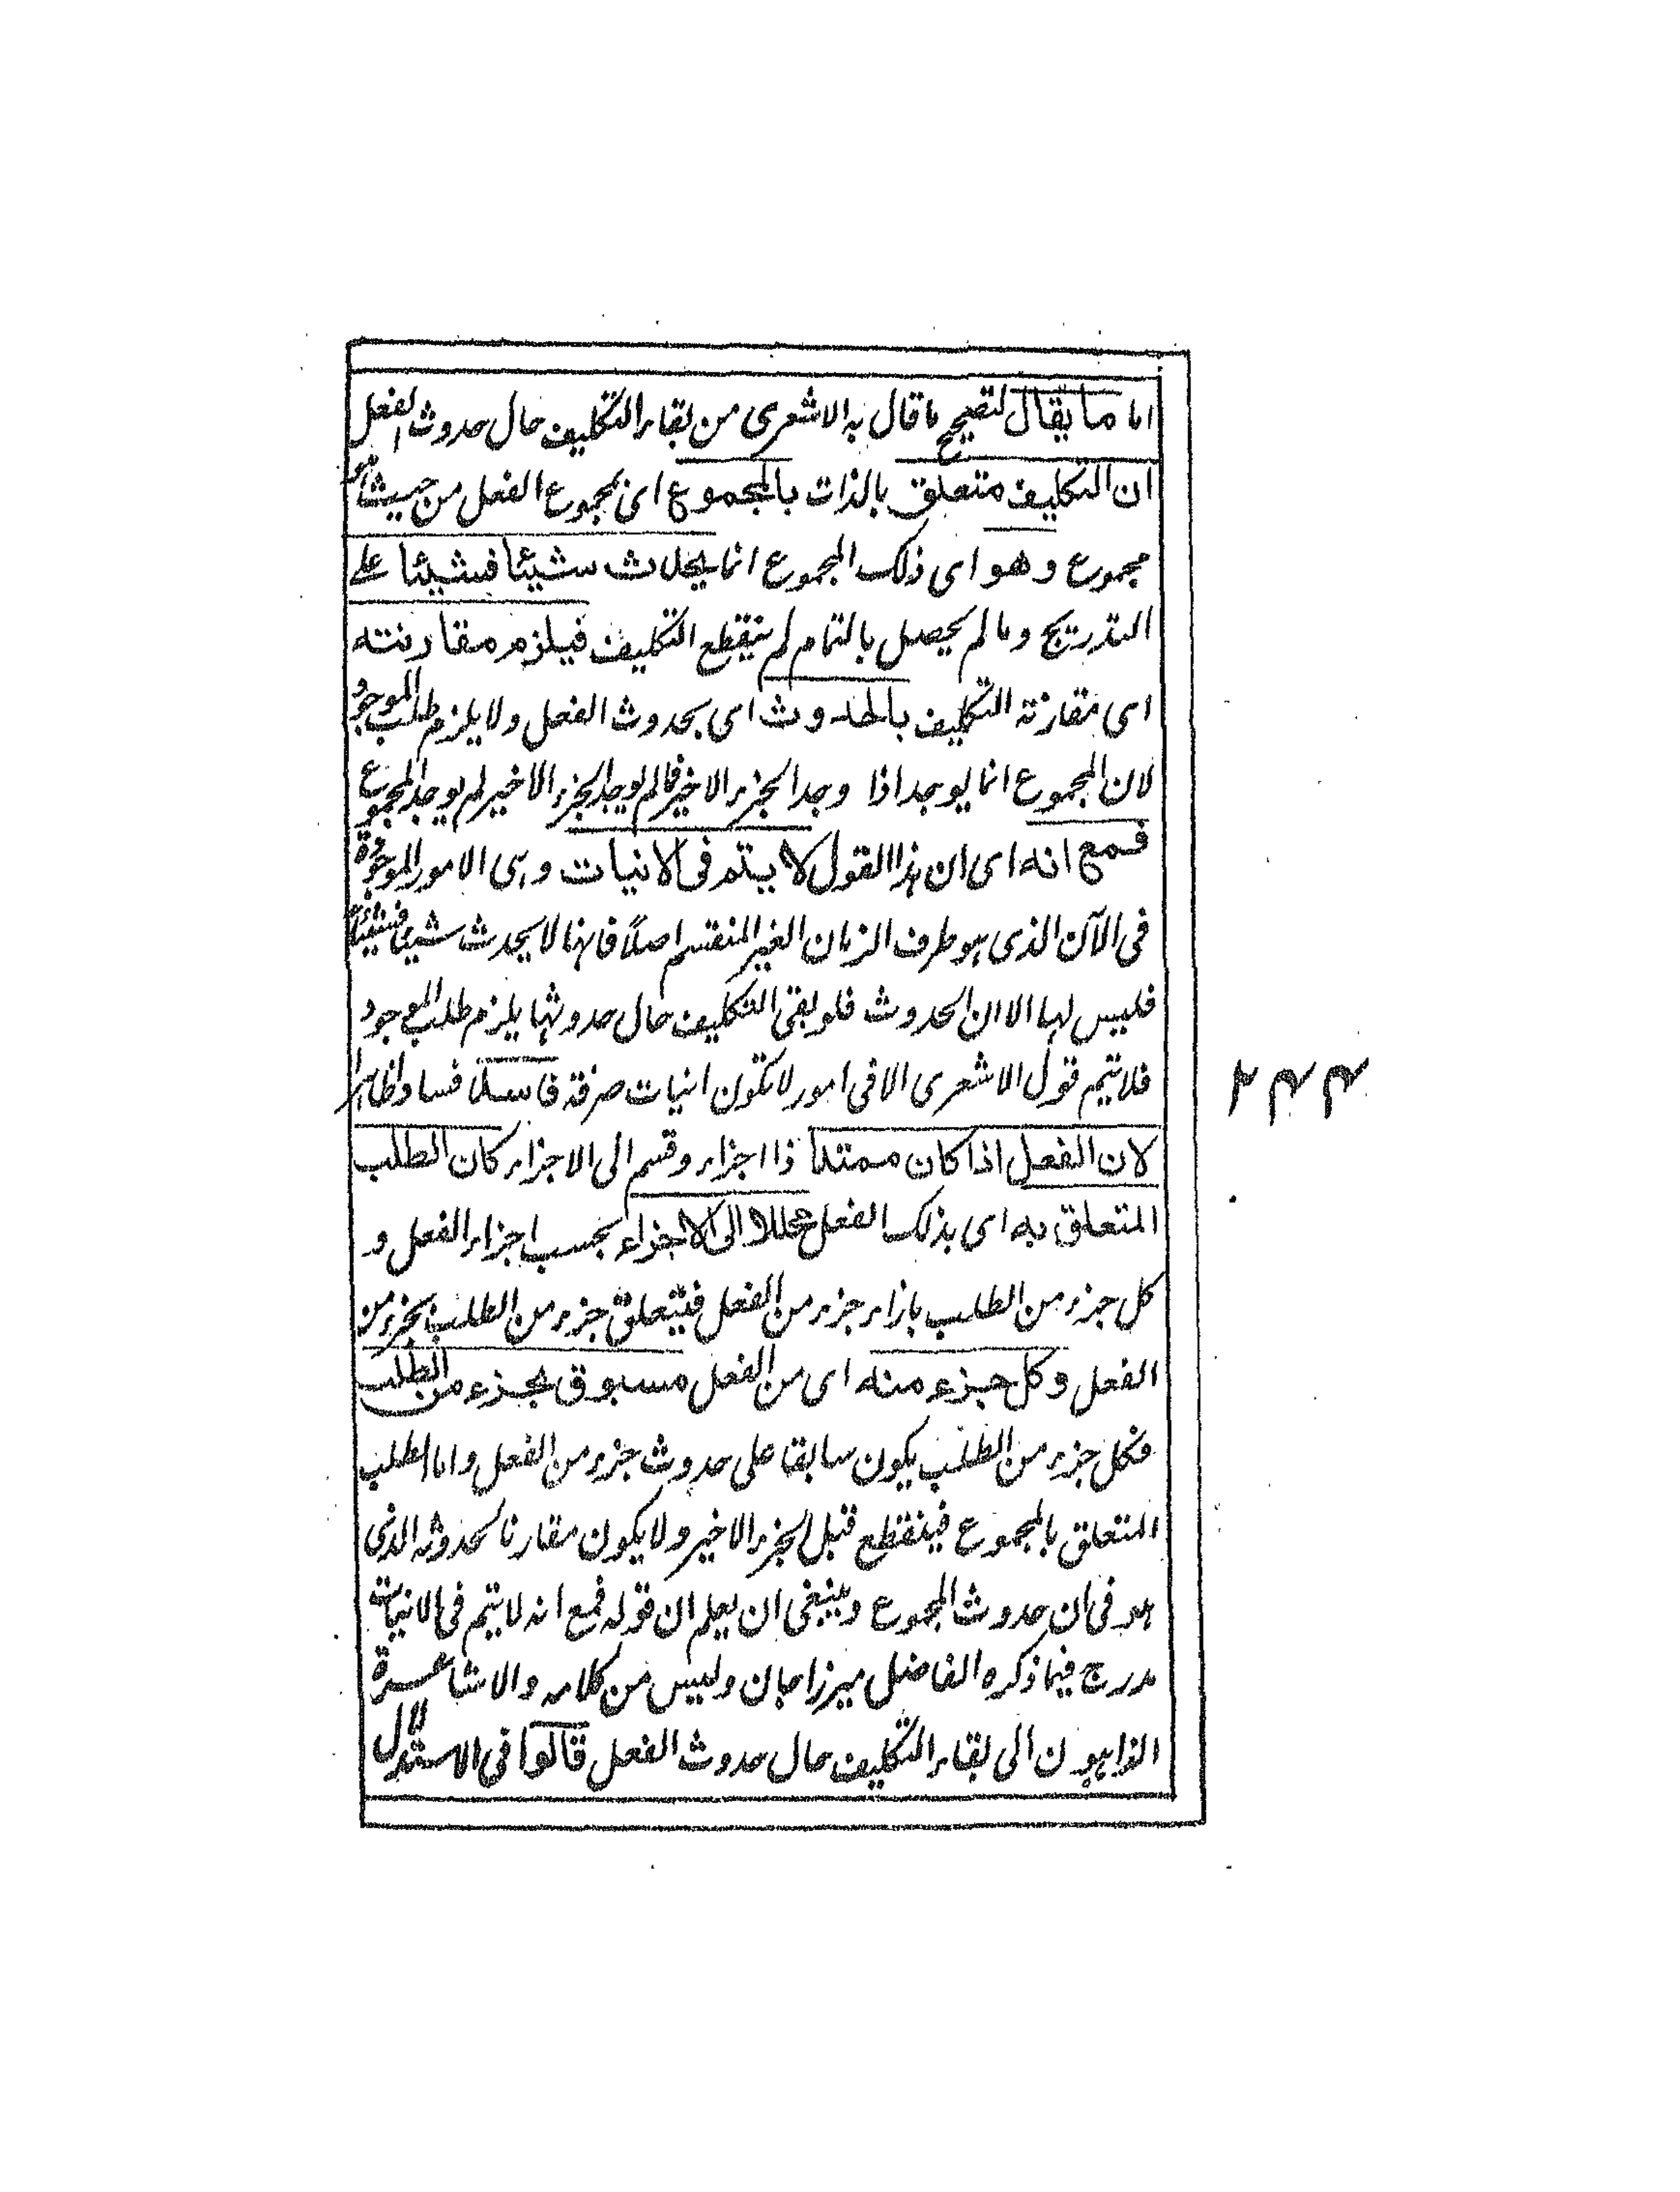 اما ما يقال لتصحيح ما قال به الاشعرى من بقاء التكليف حال حدوث الفعل
ان التكليف متعلق بالذات بالمجموع اى بمجموع الفعل من حيث هو
مجموع وهو اى ذلك المجموع انما يحدث شيئا فشيئا على
التدريج وما لم يحصل بالتمام لم ينقطع التكليف فيلزم مقارنته
اى مقارنة التكليف بالحدوث اى بحدوث الفعل ولا يلزم طلب الموجود
لان المجموع انما يوجد اذا وجد الجزء الاخير فما لم يوجد الجزء الاخير لم يوجد المجموع
فمع انه اى ان هذا القول لا يتم فى الانيات وهى الامور الموجودة
فى الآن الذى هو طرف الزمان الغير المنقسم اصلاً فانها لا يحدث شيئا فشيئاً
فليس لها الا ان الحدوث فلو بقى التكليف حال حدوثها يلزم طلب الموجود
فلا يتم قول الاشعرى الا فى امور لا تكون انيات صرفة فاسد فسادا ظاهرا
لان الفعل اذا كان ممتدا ذا اجزاء وقسم الى الاجزاء كان الطلب
المتعلق به اى بذلك الفعل محللا الى الاجزاء بحسب اجزاء الفعل و
كل جزء من الطلب بازاء جزء من الفعل فيتعلق جزء من الطلب بجزء من
الفعل وكل جزء منه اى من الفعل مسبوق بجزء من الطلب
فكل جزء من الطلب يكون سابقا على حدوث جزء من الفعل واما الطلب
المتعلق بالمجموع فينقطع قبل الجزء الاخير ولا يكون مقارنا لحدوثه الذى
هو فى ان حدوث المجموع وينبغى ان يعلم ان قوله فمع انه لا يتم فى الانيات
مدرج فيما ذكره الفاضل ميرزا جان وليس من كلامه والاشاعرة
الذاهبون الى بقاء التكليف حال حدوث الفعل قالوا فى الاستدلال